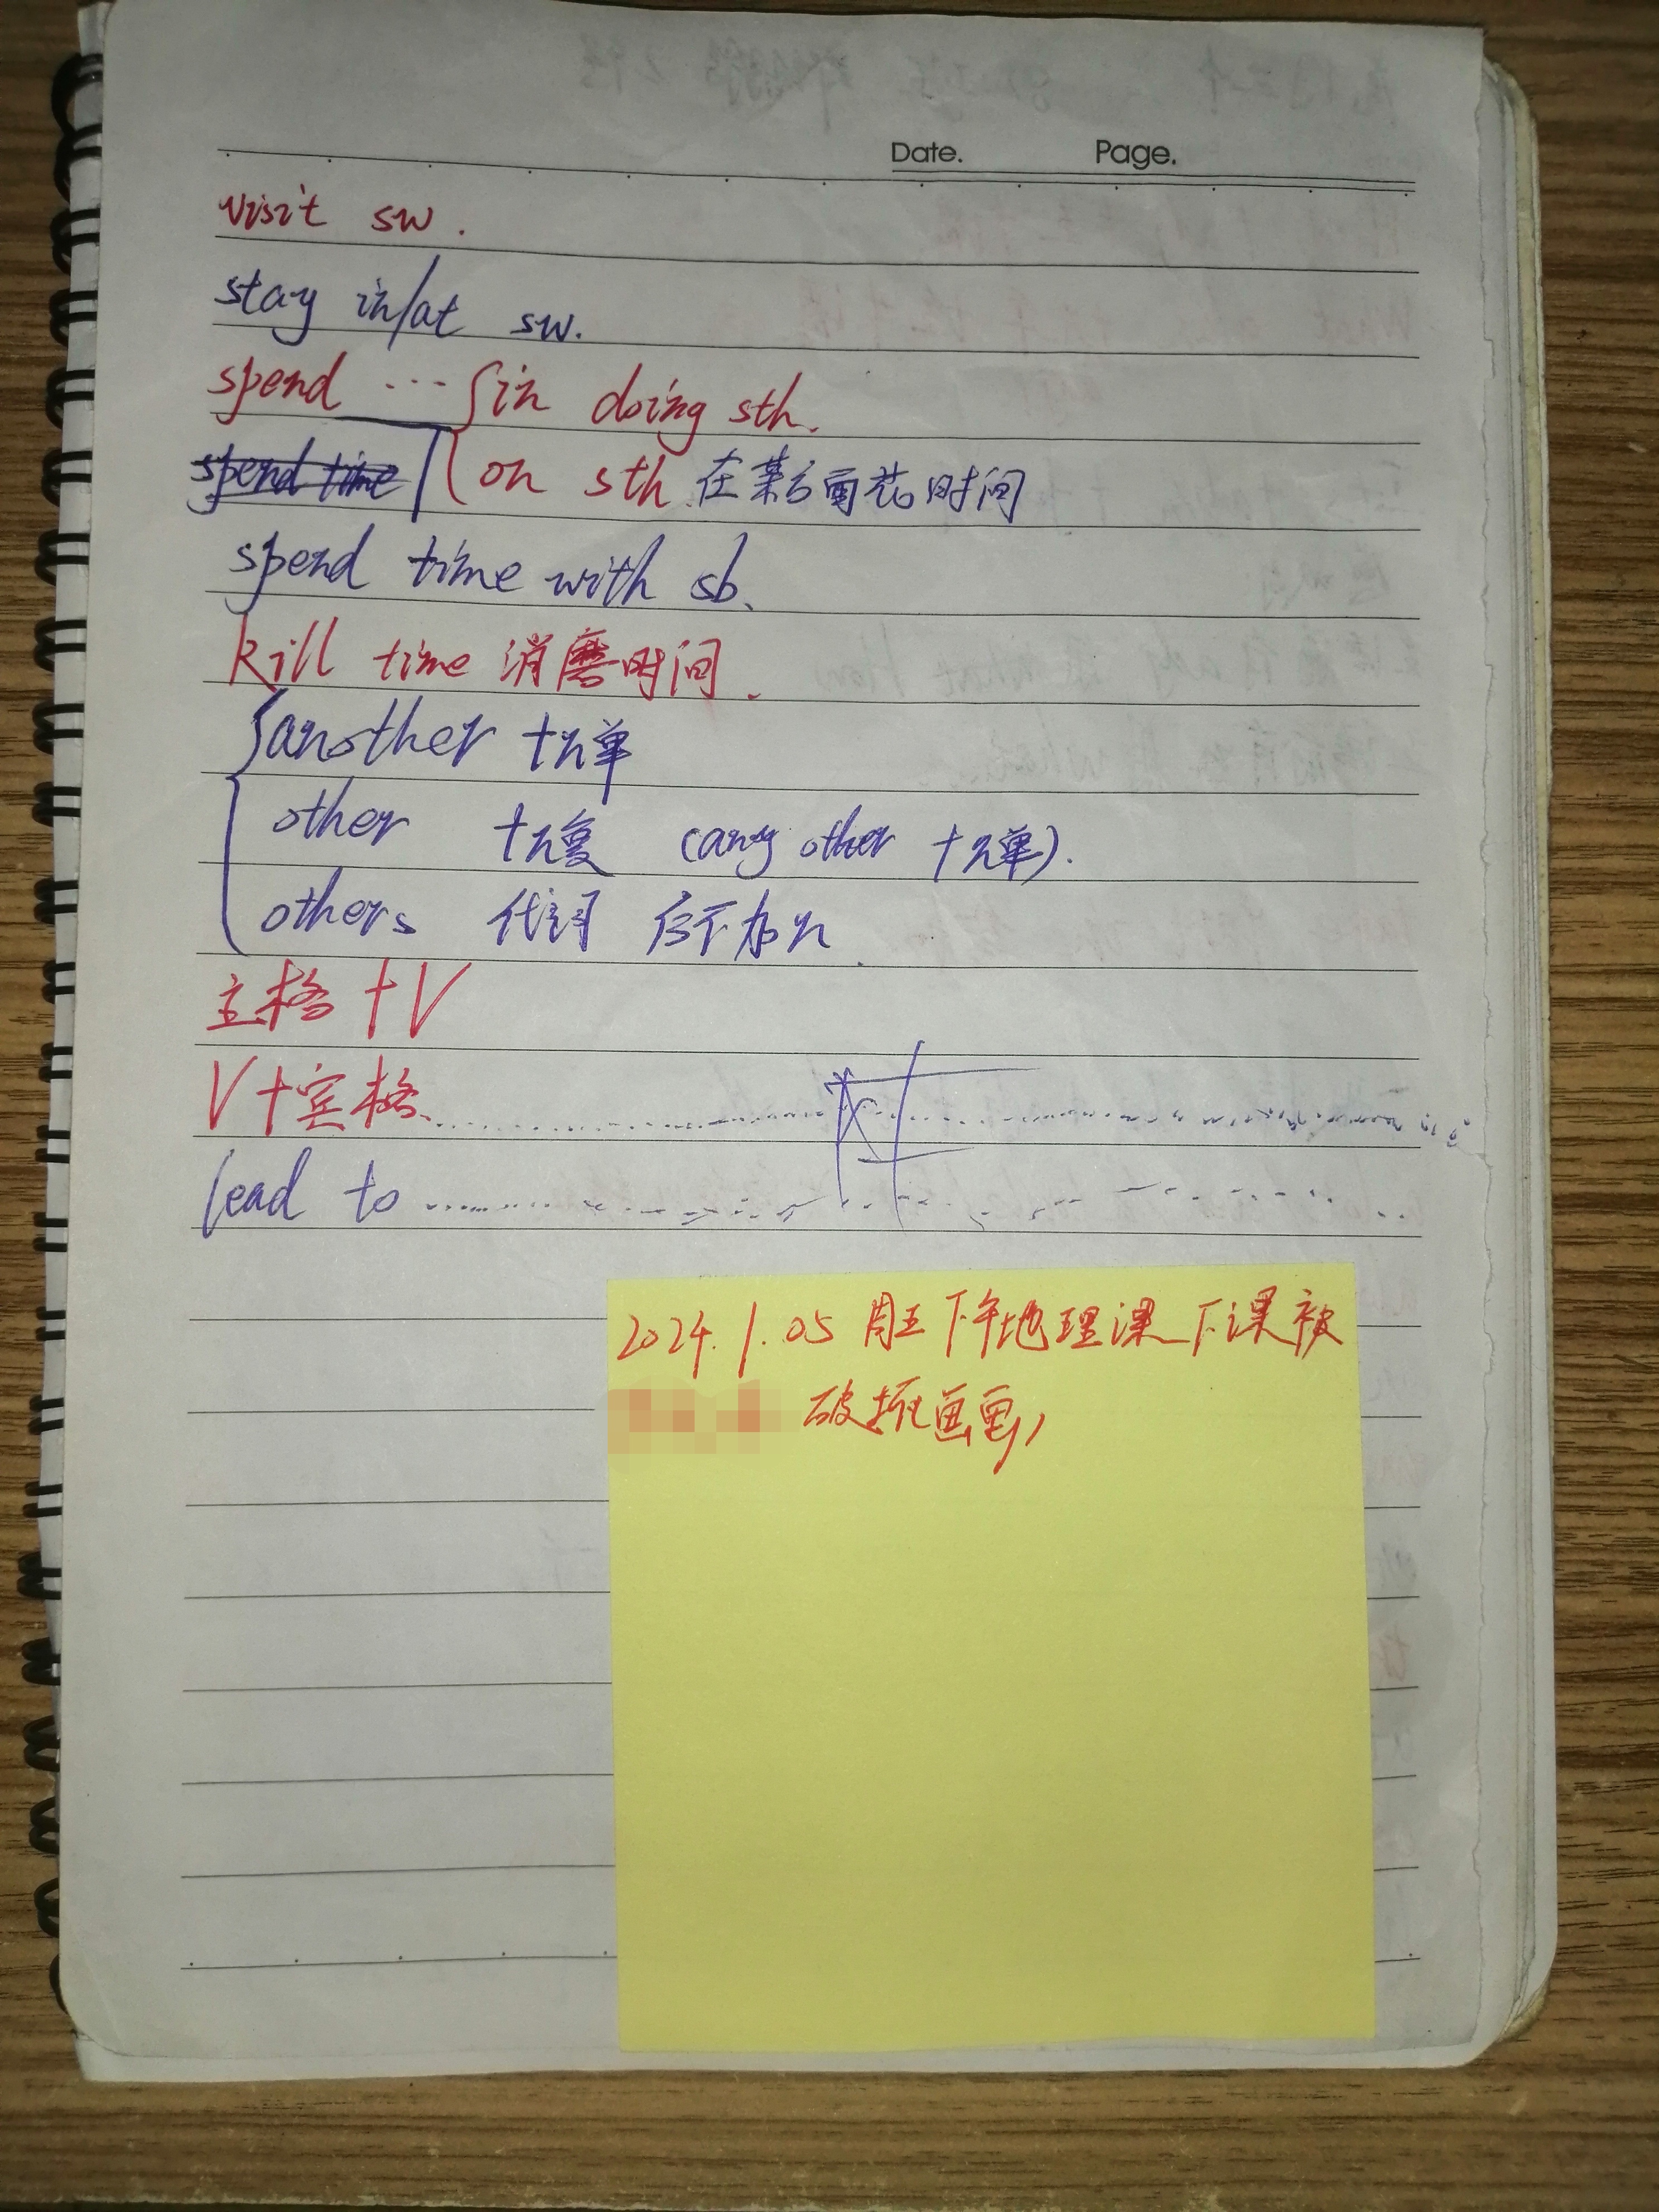 Date. Page.
visit sw.
stay in/at sw.
spend ... { in doing sth.
on sth. 在某方面花时间
spend time with sb.
kill time 消磨时间.
{ another +n单
other +n复 (any other +n单).
others 代词 后不加n
主格+V
V+宾格.
lead to
2024.1.05 周五下午地理课下课被
破抠画画,